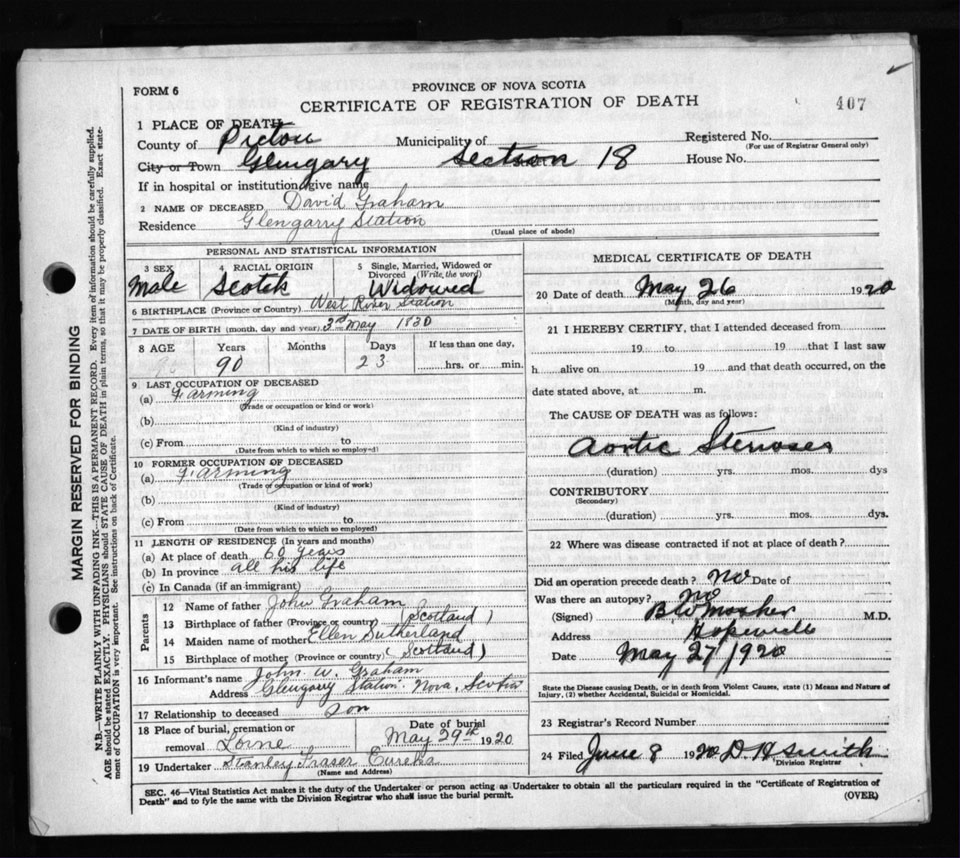 FORM 6
PROVINCE OF NOVA SCOTIA
CERTIFICATE OF REGISTRATION OF DEATH
407
1 PLACE OF DEATH
County of Pictou Municipality of Section 18 Registered No.
(For use of Registrar General only)
City or Town Glengary House No.
If in hospital or institution give name
2 NAME OF DECEASED David Graham
Residence Glengarry Station
(Usual place of abode)
PERSONAL AND STATISTICAL INFORMATION
3 SEX Male
4 RACIAL ORIGIN Scotch
5 Single, Married, Widowed or Divorced (Write, the word) Widowed
6 BIRTHPLACE (Province or Country) West River Station
7 DATE OF BIRTH (month, day and year) 3rd May 1830
8 AGE Years Months Days If less than one day,
90 23 hrs. or min.
9 LAST OCCUPATION OF DECEASED
(a) Farming
(Trade or occupation or kind or work)
(b)
(Kind of industry)
(c) From to
(Date from which to which so employed)
10 FORMER OCCUPATION OF DECEASED
(a) Farming
(Trade or occupation or kind of work)
(b)
(Kind of industry)
(c) From to
(Date from which to which so employed)
11 LENGTH OF RESIDENCE (In years and months)
(a) At place of death 60 years
(b) In province all his life
(c) In Canada (if an immigrant)
Parents
12 Name of father John Graham
13 Birthplace of father (Province or country) (Scotland)
14 Maiden name of mother Ellen Sutherland
15 Birthplace of mother (Province or country) (Scotland)
16 Informant's name John W. Graham
Address Glengary Station. Nova, Scotia
17 Relationship to deceased son
18 Place of burial, cremation or removal Lorne
Date of burial May 29th 1920
19 Undertaker Stanley Fraser Eureka
(Name and Address)
MEDICAL CERTIFICATE OF DEATH
20 Date of death May 26 1920
(Month, day and year)
21 I HEREBY CERTIFY, that I attended deceased from
19 to 19 that I last saw
h alive on 19 and that death occurred, on the
date stated above, at m.
The CAUSE OF DEATH was as follows:
Aortic Stenoses
(duration) yrs. mos. dys
CONTRIBUTORY
(Secondary)
(duration) yrs. mos. dys.
22 Where was disease contracted if not at place of death?
Did an operation precede death? No Date of
Was there an autopsy? No
(Signed) B W Mosher M.D.
Address Hopewell
Date May 27/1920
State the Disease causing Death, or in death from Violent Causes, state (1) Means and Nature of
Injury, (2) whether Accidental, Suicidal or Homicidal.
23 Registrar's Record Number
24 Filed June 8 1920 D H Smith
Division Registrar
SEC. 46—Vital Statistics Act makes it the duty of the Undertaker or person acting as Undertaker to obtain all the particulars required in the "Certificate of Registration of
Death" and to fyle the same with the Division Registrar who shall issue the burial permit.
(OVER)
MARGIN RESERVED FOR BINDING
N.B.—WRITE PLAINLY WITH UNFADING INK—THIS IS A PERMANENT RECORD. Every item of information should be carefully supplied.
AGE should be stated EXACTLY. PHYSICIANS should STATE CAUSE OF DEATH in plain terms, so that it may be properly classified. Exact state-
ment of OCCUPATION is very important. See instructions on back of Certificate.